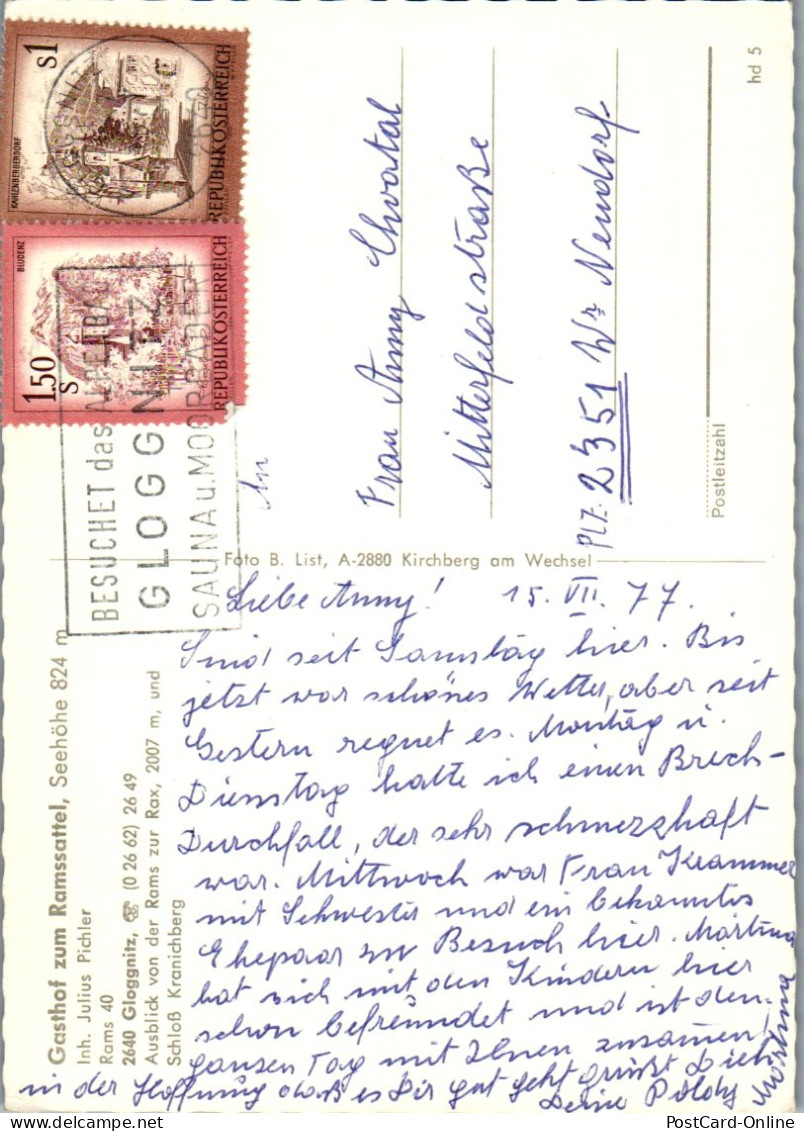 Gasthof zum Ramssattel, Seehöhe 824 m
Inh. Julius Pichler
Rams 40
2640 Gloggnitz, ☏ (0 26 62) 26 49
Ausblick von der Rams zur Rax, 2007 m, und
Schloß Kranichberg
Liebe Anny! 15. VII. 77.
Sind seit Samstag hier. Bis
jetzt war schönes Wetter, aber seit
Gestern regnet es. Montag u.
Dienstag hatte ich einen Brech-
Durchfall, der sehr schmerzhaft
war. Mittwoch war Frau Krammer
mit Schwester und ein bekanntes
Ehepaar zu Besuch hier. Martina
hat sich mit den Kindern hier
schon befreundet und ist den
ganzen Tag mit Ihnen zusammen!
in der Hoffnung daß es Dir gut geht grüßt Dich
Deine Poldy
Martina
Foto B. List, A-2880 Kirchberg am Wechsel
s1
KAHLENBERGERDORF
REPUBLIK ÖSTERREICH
1.50
S
BLUDENZ
REPUBLIK ÖSTERREICH
2640
BESUCHET das ALPENBAD
GLOGGNITZ
SAUNA u. MOORBÄDER
An
Frau Anny Chvatal
Mitterfeldstraße
PLZ: 2351 Wr Neudorf
Postleitzahl
hd 5
PostCard-Online